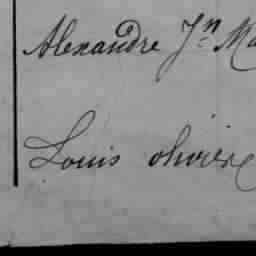 Alexandre Jn Ma
Louis olivière